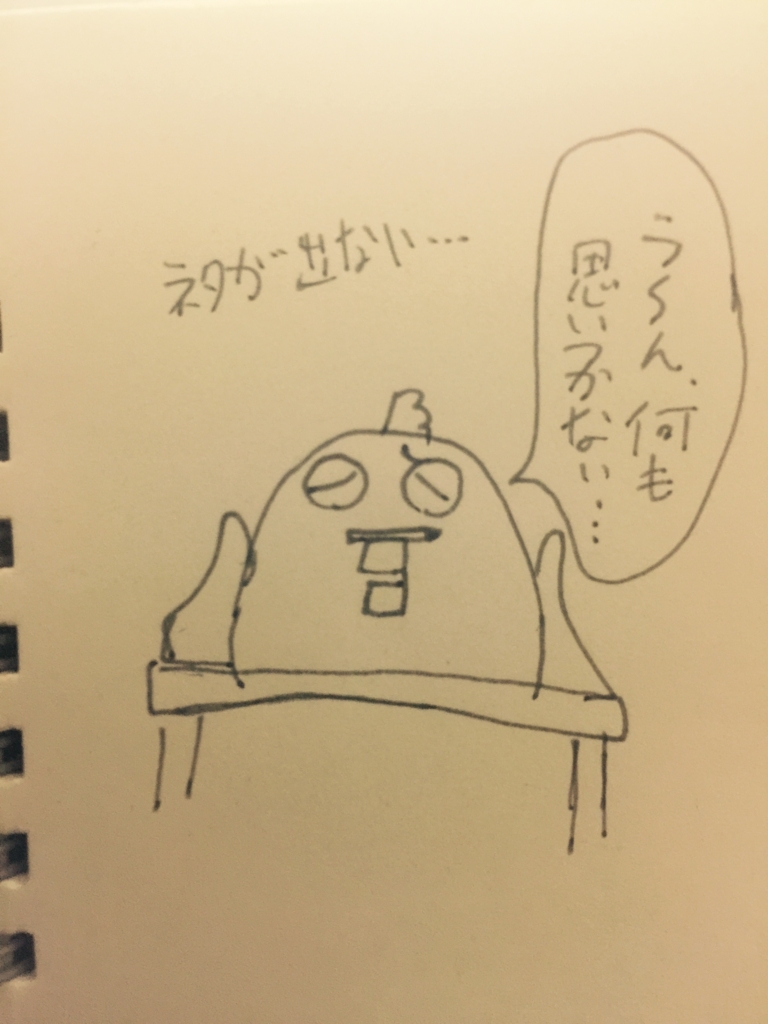 ネタが出ない…
う〜ん、何も
思いつかない…